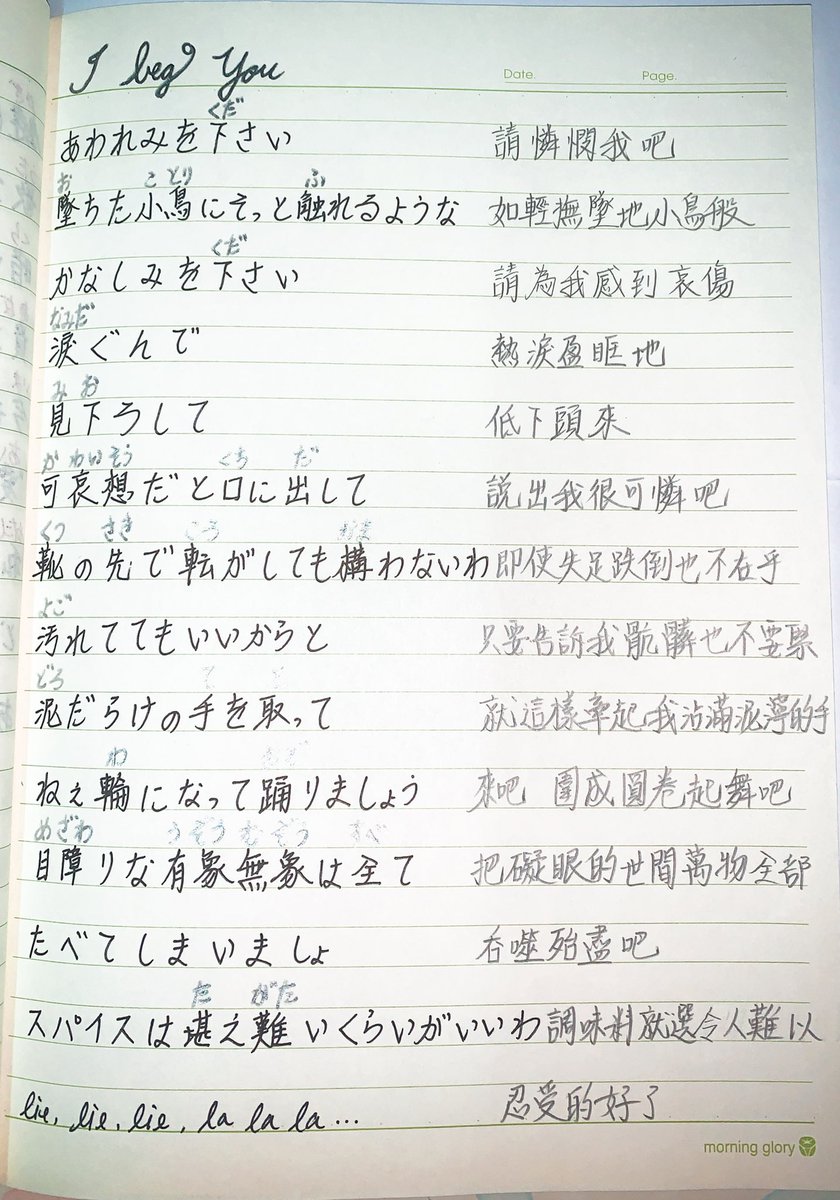 I beg You
Date. Page.
くだ
あわれみを下さい 請憐憫我吧
お ことり ふ
墜ちた小鳥にそっと触れるような 如輕撫墜地小鳥般
くだ
かなしみを下さい 請為我感到哀傷
なみだ
涙ぐんで 熱淚盈眶地
みお
見下ろして 低下頭來
かわいそう くち だ
可哀想だと口に出して 說出我很可憐吧
くつ さき ころ かま
靴の先で転がしても構わないわ 即使失足跌倒也不在乎
よご
汚れててもいいからと 只要告訴我骯髒也不要緊
どろ て と
泥だらけの手を取って 就這樣牽起我沾滿泥濘的手
わ
ねえ輪になって踊りましょう 來吧 圍成圓卷起舞吧
めざわ うぞうむぞう すべ
目障りな有象無象は全て 把礙眼的世間萬物全部
たべてしまいましょ 吞噬殆盡吧
た がた
スパイスは堪え難いくらいがいいわ 調味料就選令人難以
lie, lie, lie, la la la... 忍受的好了
morning glory